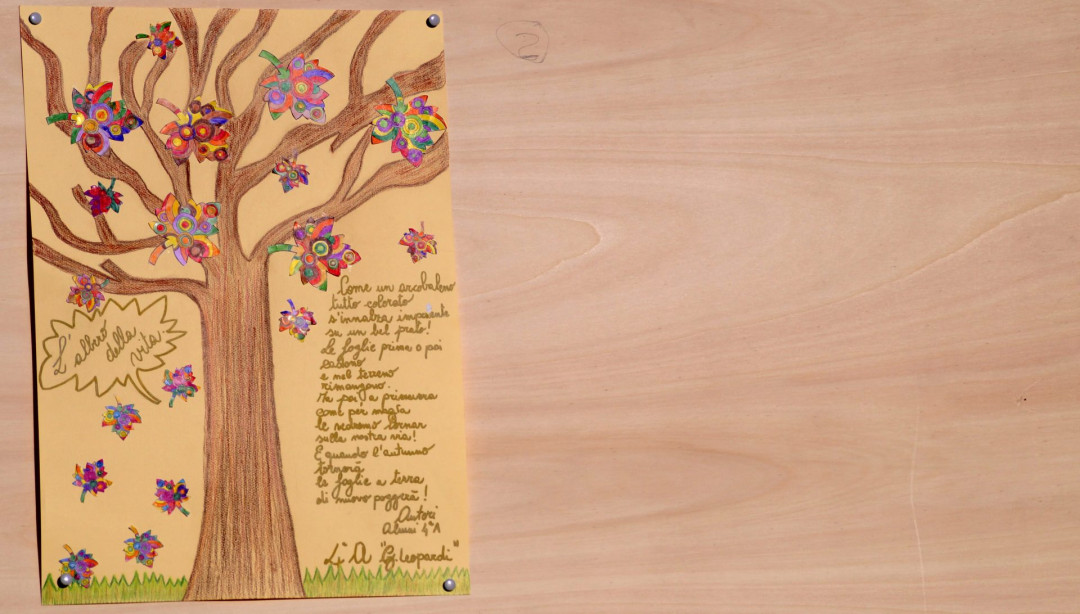 2
L'albero
della
vita
Come un arcobaleno
tutto colorato
s'innalza imponente
su un bel prato!
Le foglie prima o poi
cadono
e nel terreno
rimangono.
Ma poi a primavera
come per magia
le vedremo tornar
sulla nostra via!
E quando l'autunno
tornerà
le foglie a terra
di nuovo poggerà!
Autori
Alunni 4ªA
"G. Leopardi"